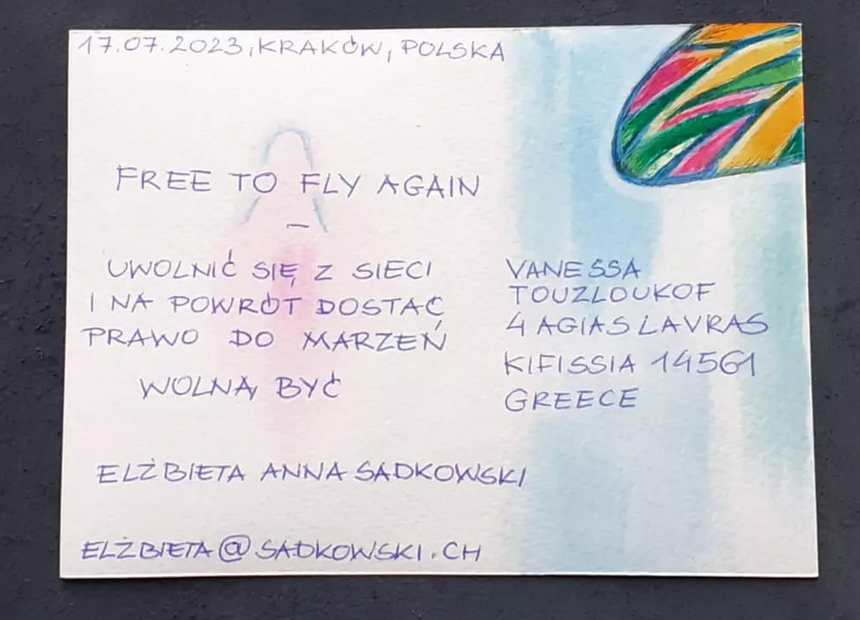 17.07.2023, KRAKÓW, POLSKA
FREE TO FLY AGAIN
—
UWOLNIĆ SIĘ Z SIECI
I NA POWRÓT DOSTAĆ
PRAWO DO MARZEŃ
WOLNĄ BYĆ
ELŻBIETA ANNA SADKOWSKI
ELŻBIETA@SADKOWSKI.CH
VANESSA
TOUZLOUKOF
4 AGIAS LAVRAS
KIFISSIA 14561
GREECE